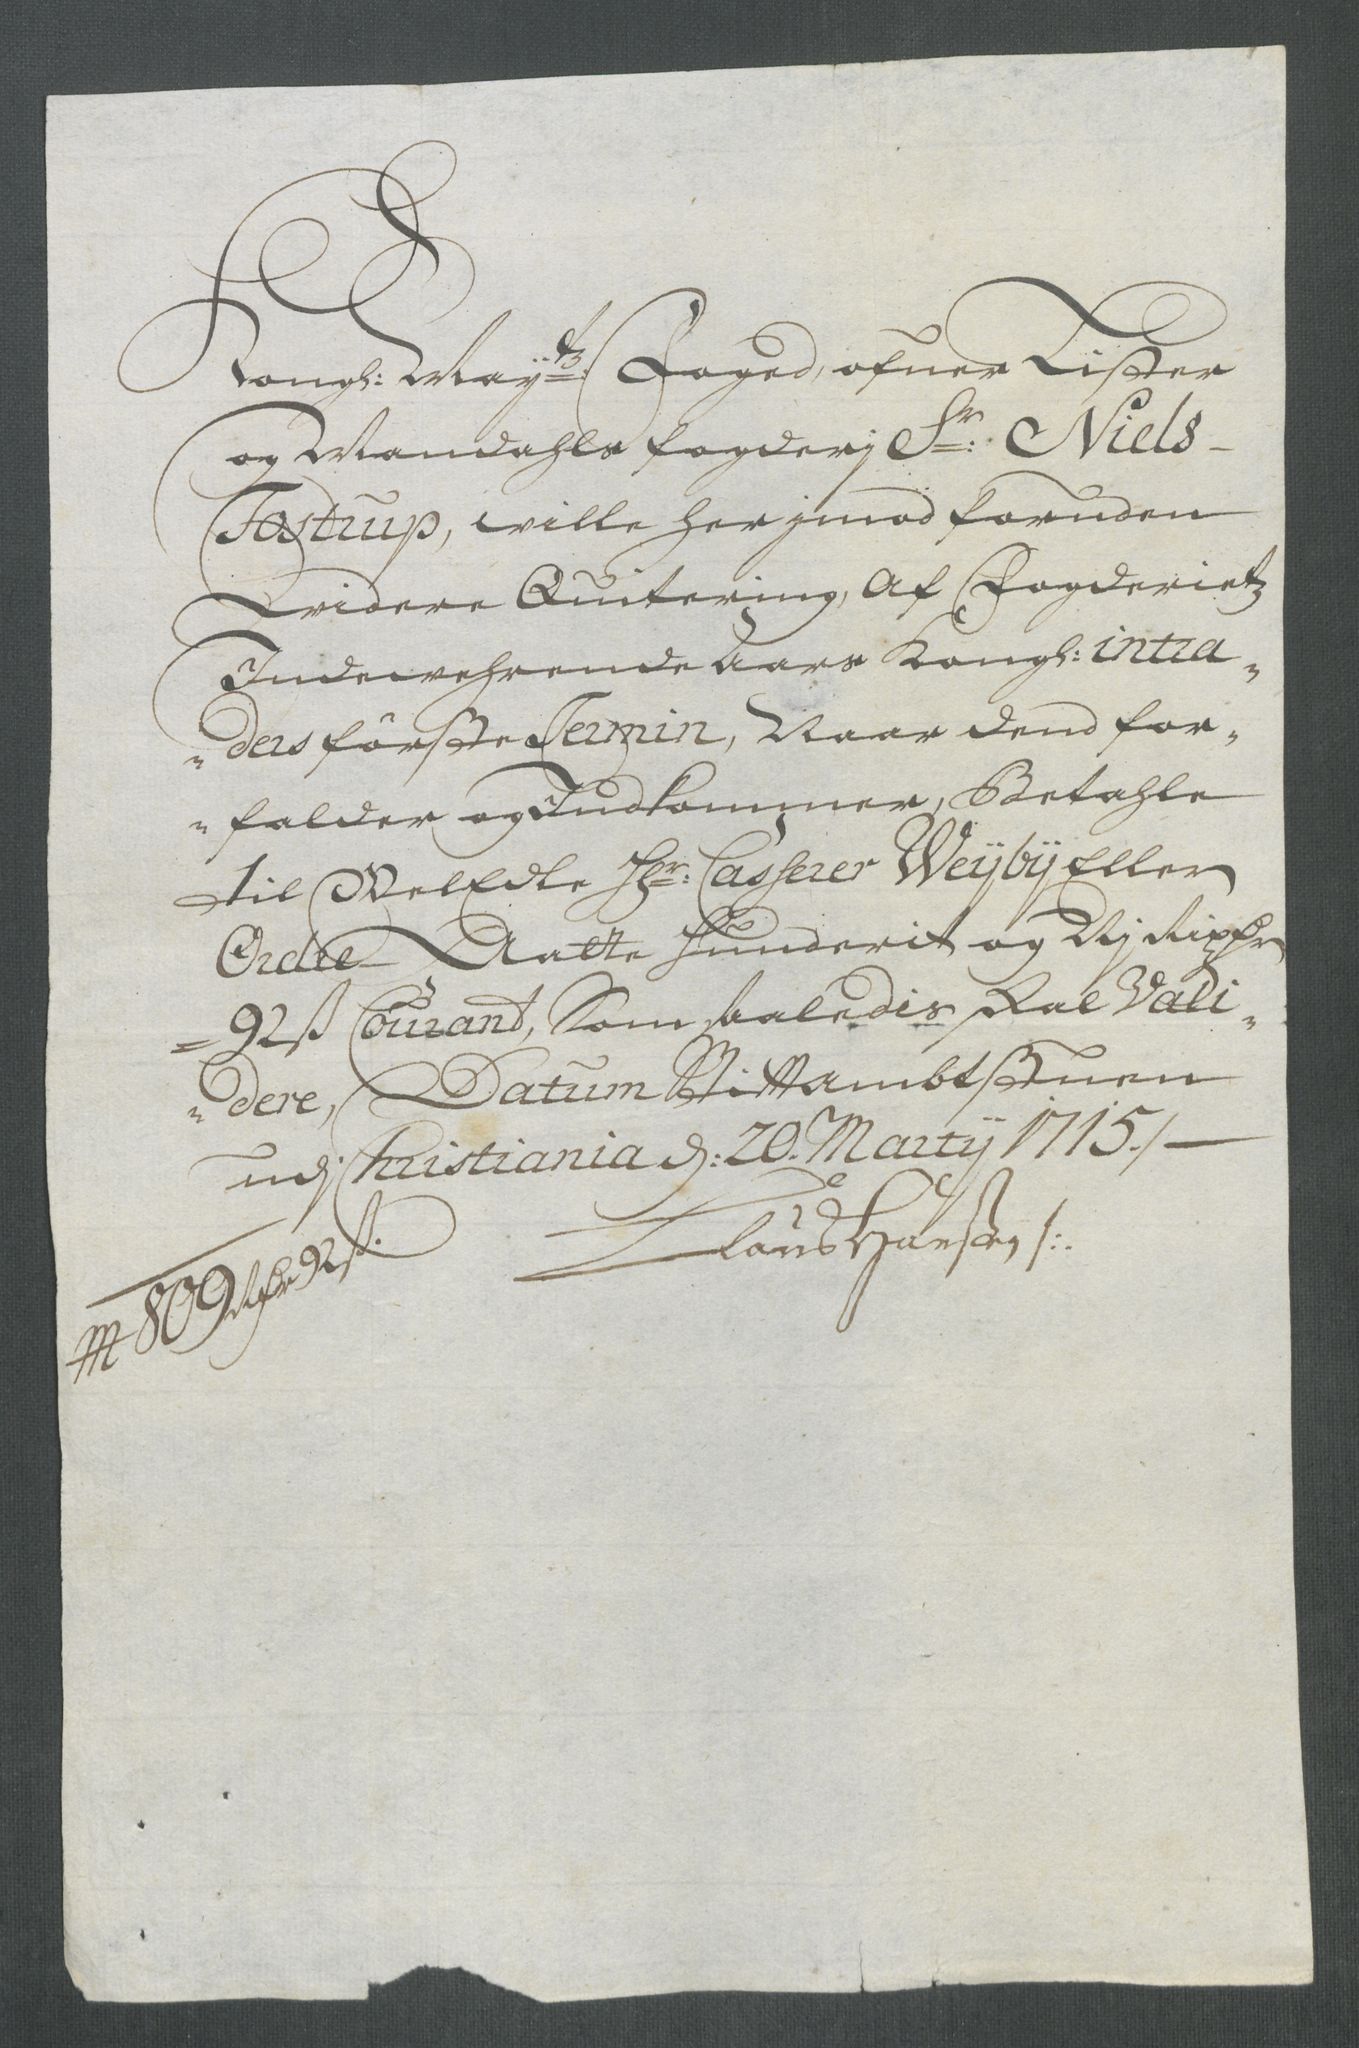 Kongl: Maÿtz: Foged, ofuer Lister
og Mandahls fogderj Sr: Niels
Tostrup, wille her jmod foruden
widere Quitering, Af Fogderietz
Indewehrende Aars Kongl: intra„
„ders förste Termin, Naar dend for„
„falder og Indkommer, Betahle
til WelEdle Hr: Casserer Weÿbÿ Eller
Ordre Aatte Hunderit og Nj Rixdlr
92 ß Courant, Som saaledis skal Vali„
„dere, Datum Stiftambtstuen
udj Christiania d: 20. Martÿ 1715./
Claus Hansen /:.
809 Rdlr 92 ß.